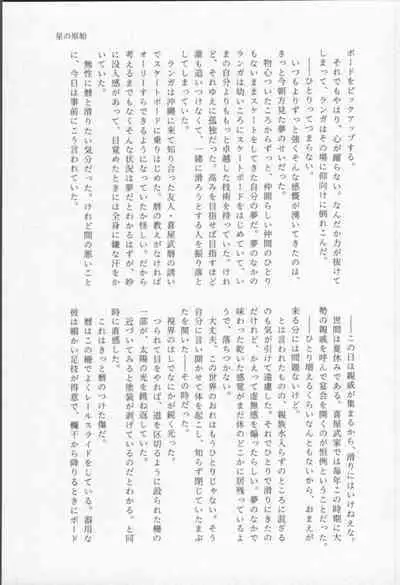 星の原始
ボードをピックアップする。
それでもやはり、心が躍らない。なんだか力が抜けて
しまって、ランガはその場に仰向けに倒れこんだ。
――ひとりってつまらない。
いつもよりずっと強くそんな感慨が湧いてきたのは、
きっと今朝方見た夢のせいだった。
物心ついたころからずっと、仲間らしい仲間のひとり
もないままスケートをしてきた自分の夢だ。夢のなかの
ランガは幼いころにスケートボードをはじめていて、い
まの自分よりももっと卓越した技術を持っていた。けれ
ど、それゆえに孤独だった。高みを目指せば目指すほど
誰も追いつけなくて、一緒に滑ろうとする人を振り落と
してしまっていた。
ランガは沖縄に来て知り合った友人・喜屋武暦の誘い
でスケートボードに乗りはじめた。暦の教えがなければ
オーリーすらできるようになっていたか怪しい。だから
考えるまでもなくそんな状況は夢だとわかるはずが、妙
に没入感があって、目覚めたときには全身に嫌な汗をか
いていた。
無性に暦と滑りたい気分だった。けれど間の悪いこと
に、今日は事前にこう言われていた。
――この日は親戚が集まるから、滑りにはいけねえな。
世間は夏休みである。喜屋武家では毎年この時期に大
勢の親戚を呼んで宴会を開くのが恒例ということだった。
――ひとり増えるくらいなんともないから、おまえが
来る分には問題ないけど。
とは言われたものの、親族水入らずのところに混ざる
のも気が引けて遠慮した。それでひとりで滑りにきたの
だけれど、かえって虚無感を煽ったらしい。夢のなかで
味わった乾いた感覚がまだ体のどこかに居残っているよ
うで、落ちつかない。
大丈夫、この世界のおれはもうひとりじゃない。そう
自分に言い聞かせて体を起こし、知らず閉じていたまぶ
たを開いた――その時だった。
視界のはしでなにかが鋭く光った。
つられて目をやれば、道を区切るように設られた柵の
一部が、太陽の光を跳ね返していた。
近づいてみると塗装が剥げているのだとわかる。と同
時に直感した。
これはきっと暦のつけた傷だ。
暦はこの柵でよくレールスライドをしている。器用な
彼は細かい足技が得意で、欄干から降りるときにボード